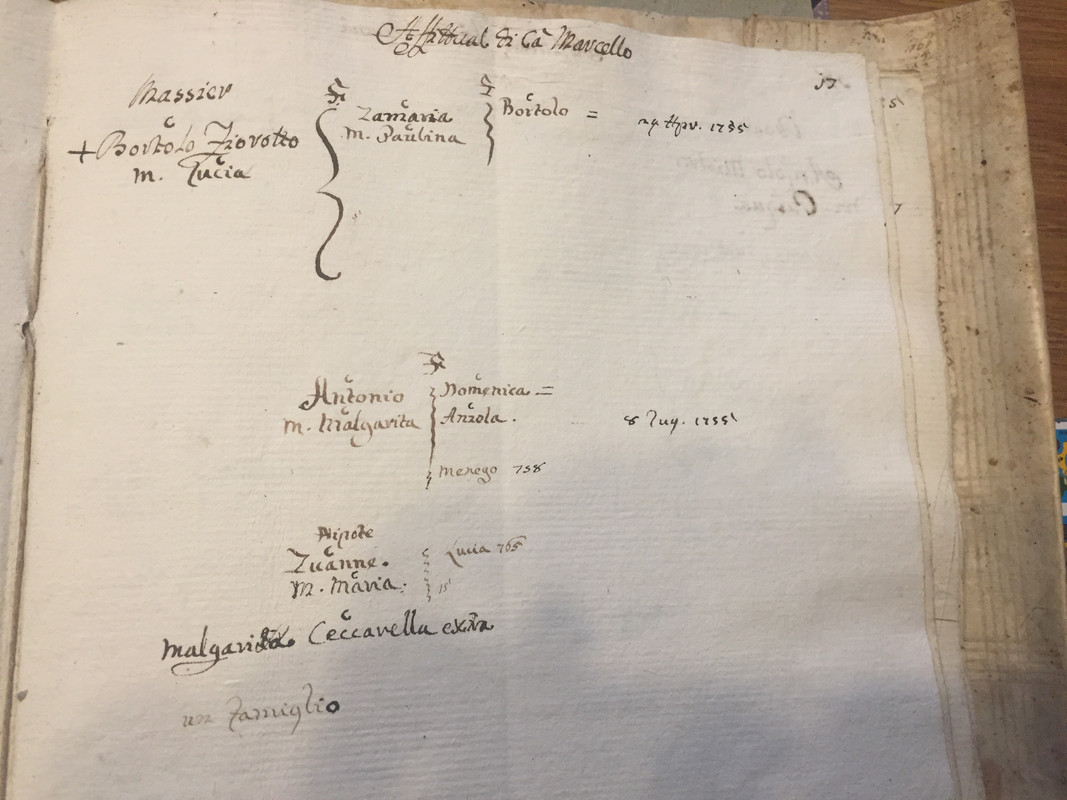 Affittual di Cà Marcello
17
Massier
+ Bortolo Ziorotto
m. Lucia
Zamaria
m. Paulina
Bortolo =
29 Apr. 1735
Antonio
m. Malgarita
Domenica =
Anzola.
8 Lug. 1755
Menego 758
Nipote
Zuanne.
m. Maria:
Lucia 765
15
Malgarita Ceccarella extra
un Famiglio
5
7